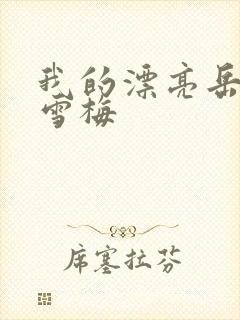 我的漂亮岳
雪梅
席塞拉芬